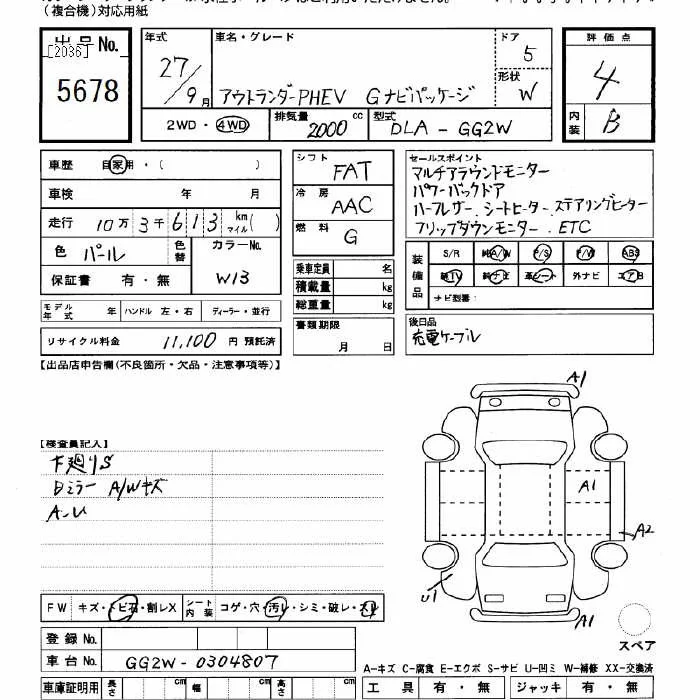 (複合機)対応用紙
出品No.
[2036]
5678
年式
27/9月
車名・グレード
アウトランダーPHEV Gナビパッケージ
ドア
5
形状
W
2WD・4WD
排気量
2000
cc
型式
DLA - GG2W
評価点
4
内装
B
車歴 自家用・( )
車検 年 月
走行 10万3千613 km マイル( )
色 パール
色替
カラーNo.
W13
保証書 有・無
モデル年式 年
ハンドル 左・右
ディーラー・並行
リサイクル料金 11,100 円 預託済
シフト
FAT
冷房
AAC
燃料
G
乗車定員 名
積載量 kg
総重量 kg
書類期限
月 日
セールスポイント
マルチアラウンドモニター
パワーバックドア
ハーフレザー、シートヒーター、ステアリングヒーター
フリップダウンモニター、ETC
装備品
S/R 純A/W P/S P/W ABS
純TV 純ナビ 革シート 外ナビ エアB
ナビ型番:
後日品
充電ケーブル
【出品店申告欄(不良箇所・欠品・注意事項等)】
【検査員記入】
下廻りS
Dミラー A/Wキズ
A-U
A1
A1
A2
U1
A1
スペア
FW キズ・トビ石・割レX
シート内装 コゲ・穴・汚レ・シミ・破レ・スレ
登録No.
車台No. GG2W-0304807
車庫証明用 長さ cm 幅 cm 高さ cm
A-キズ C-腐食 E-エクボ S-サビ U-凹ミ W-補修 XX-交換済
工具 有・無 ジャッキ 有・無